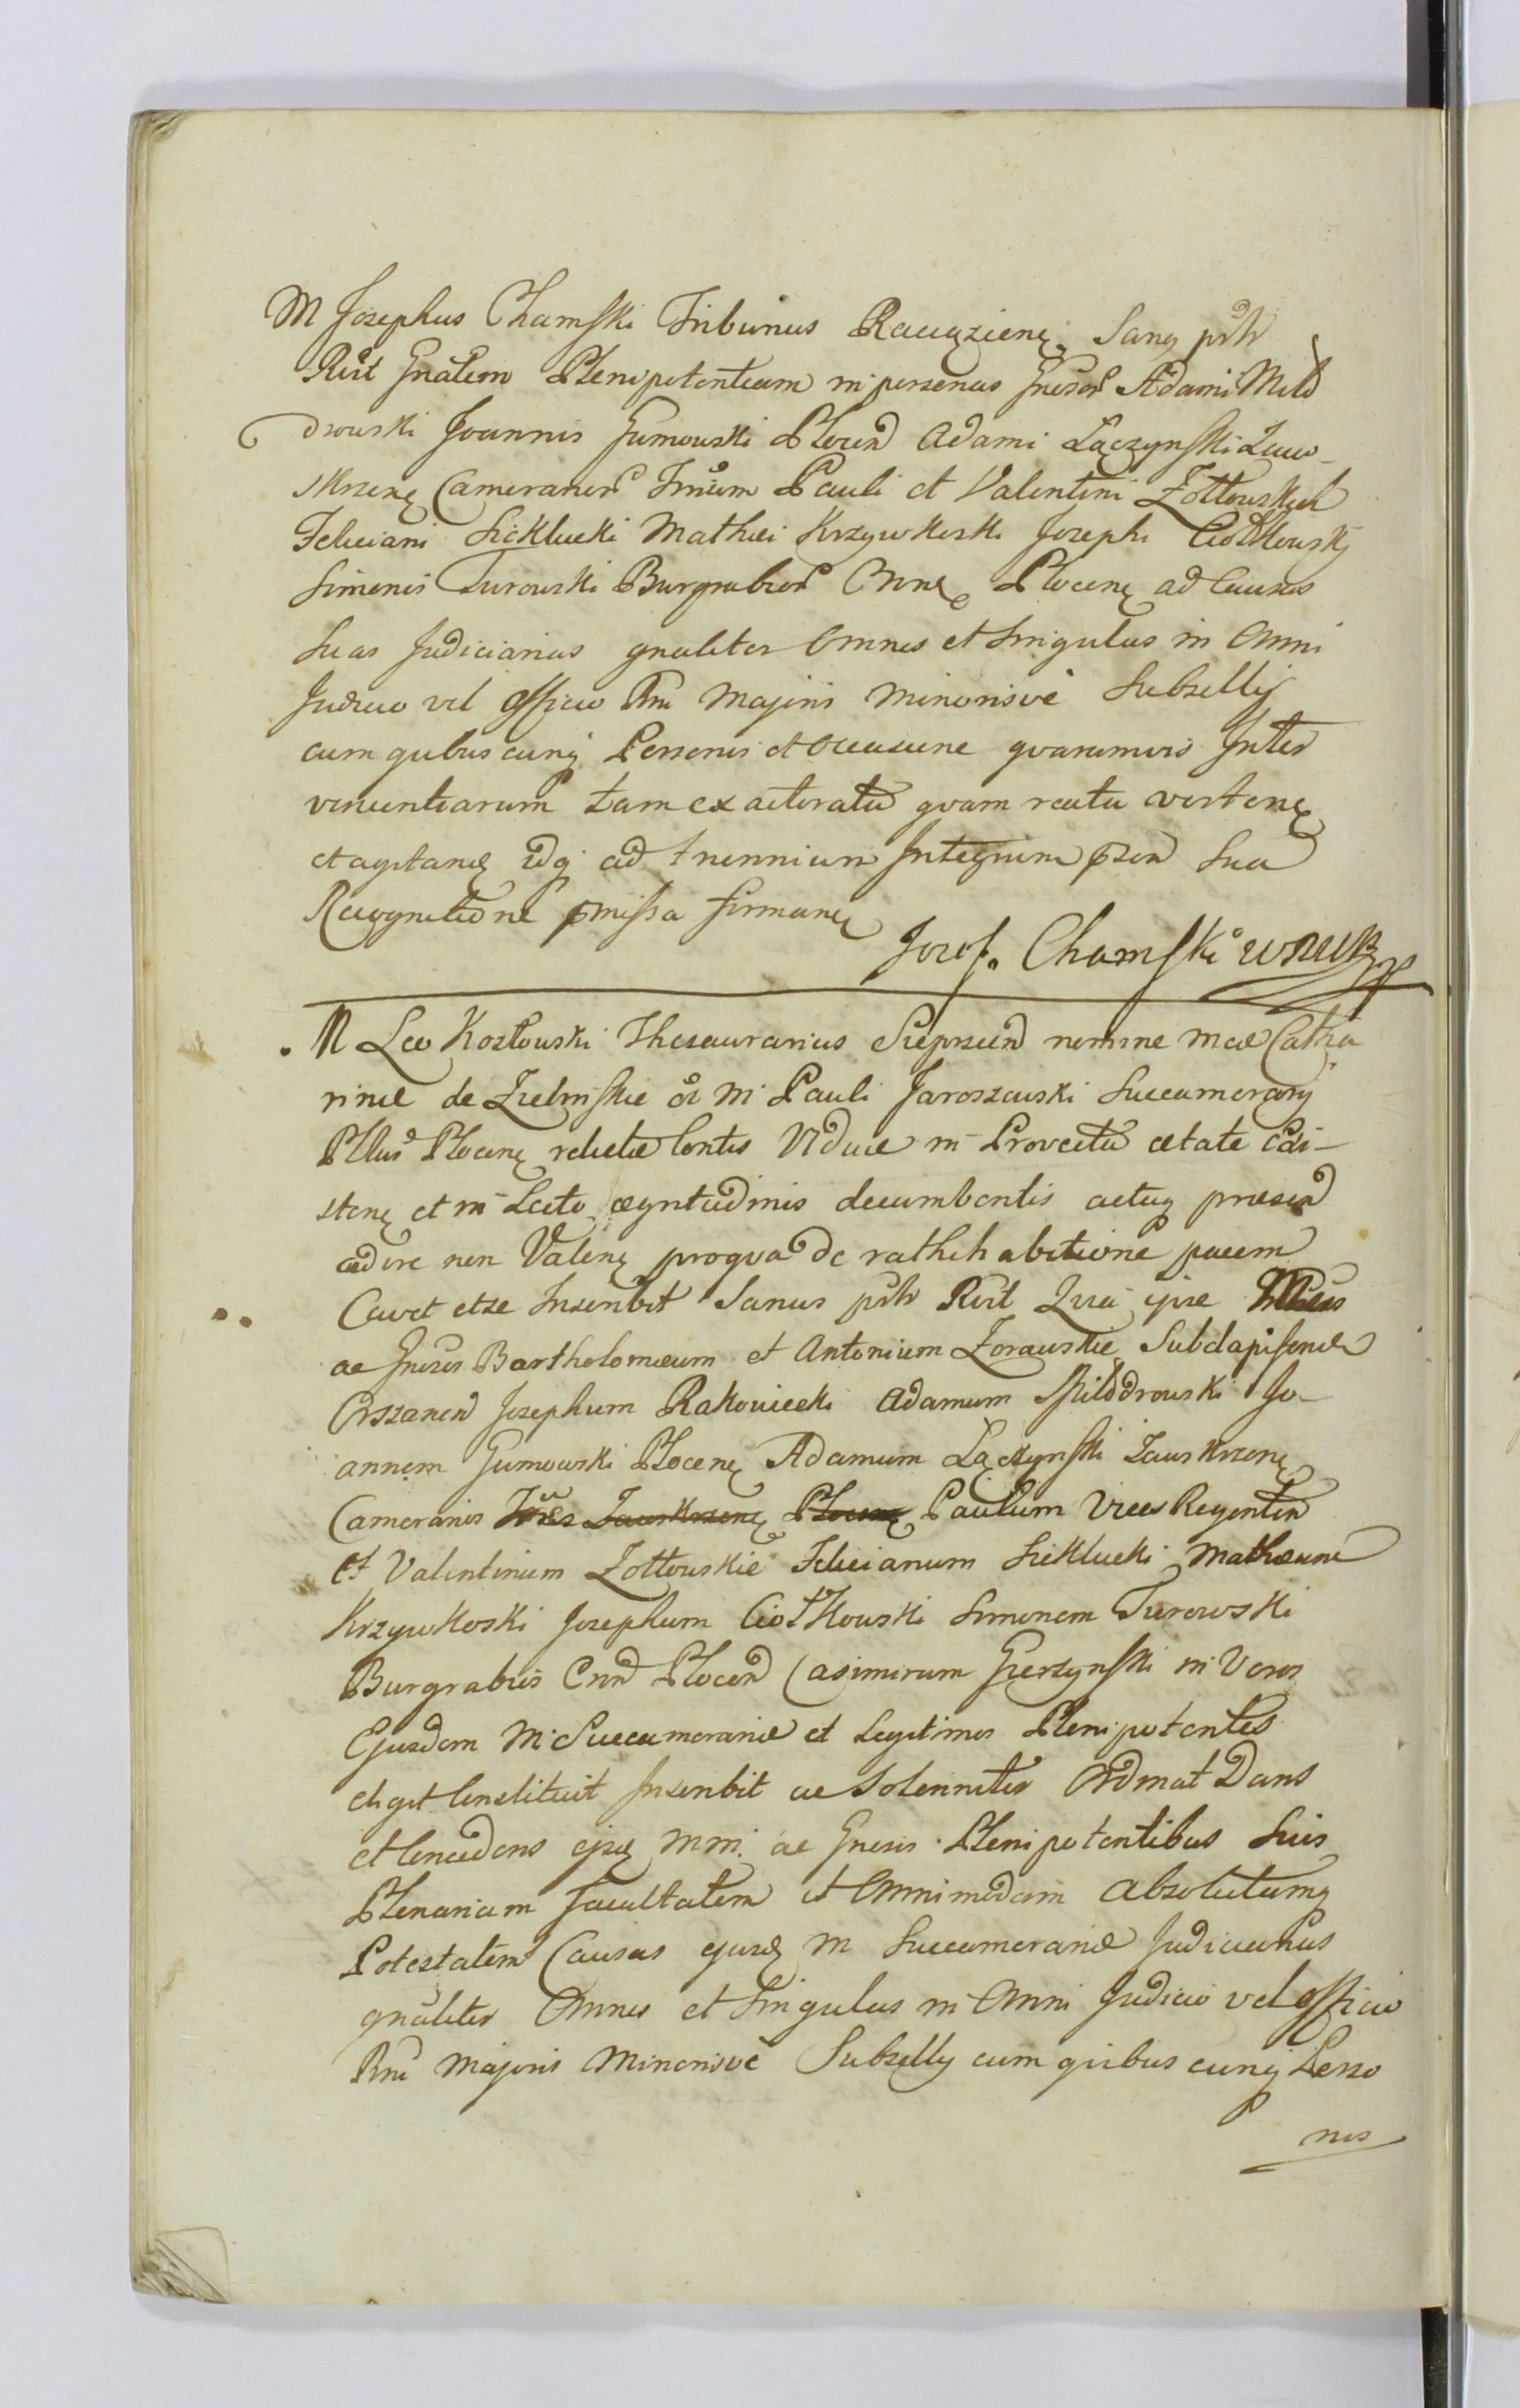 M Josephus Chamski Tribunus Raciązienẽ Sang pñtr
Rcit Gnãlem Plenipotentiam in personas Gnesor Adami Mild
drowski Joannis Gumowski Plocen Adami Łączynski Zaw-
skrzenẽ Cameranior Innum Pauli et Valentini Żołtowskich
Feliciani Sieklucki Mathei Krzywkoski Josephi Ciołkowsky
Simonis Turowski Burgrabior Crnẽ Plocenẽ ad Causas
Suas Judiciarias gnaliter Omnes et Singulas in Omni
Judicio vel Officio Rni Majoris Minorisve Subsellij
cum quibuscunq Personis et occasione quarumvis Inter
venientiarum tam ex actoratu quam reatu vertenẽ
et agitanẽ idq ad triennium Integrum pñn Sua
Recognitione pmissa firmanẽ
Josef. Chamski WRWR
M Leo Kozłowski Thesaurarius Sieprscen nomine Mae Catha
rinae de Zielinskie ol M Pauli Jaroszewski Succamerary
Pllus Plocenẽ relictae Contis Viduae in Provecta aetate exi-
stenẽ et in Lecto aegritudinis decumbentis actuq praesen
adire non Valenẽ pro qua de rathihabitione pacem
Cavet et se Inscribit Sanus pñtr Rcit Quia ipse
ac Gnesos Bartholomeum et Antonium Zorawskie Subdapiferid
Orszanen Josephum Rakowiecki Adamum Milddrowski Jo-
annem Gumowski Plocenẽ Adamum Łączynski Zawskrzenẽ
Cameranios Innes Zawskrzenẽ Plocenẽ Paulum Vices Regenten
et Valentinum Żołtowskie Felicianum Sieklucki Mathaeum
Krzywkoski Josephum Ciołkowski Simonem Turowski
Burgrabios Crn Plocen Casimirum Gierzynski in Veros
Ejusdem M Succameraridae et Legitimos Plenipotentes
eligit Constituit Inscribit ac Solenniter Ordinat Dans
et Concedens ejsq Mm. ac Gnesis Plenipotentibus Suis
Plenariam facultatem et Omnimodam Absolutamq
Potestatem Causas ejusq M Succameraridae Judiciarias
gnaliter Omnes et Singulas in Omni Judicio vel Officio
Rni Majoris Minorisve Subsellij cum quibuscunq Perso
nis